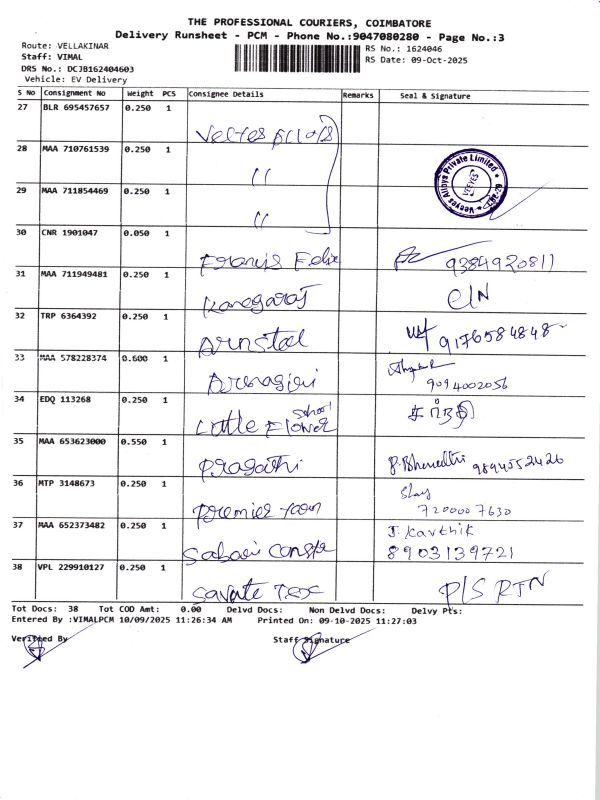 THE PROFESSIONAL COURIERS, COIMBATORE
Delivery Runsheet - PCM - Phone No.:9047080280 - Page No.:3
Route: VELLAKINAR
RS No.: 1624046
Staff: VIMAL
RS Date: 09-Oct-2025
DRS No.: DCJB162404603
Vehicle: EV Delivery
S No Consignment No Weight PCS Consignee Details Remarks Seal & Signature
27 BLR 695457657 0.250 1
28 MAA 710761539 0.250 1 "
Veeyes Alloys Private Limited
VEEYES
29 MAA 711854469 0.250 1 "
30 CNR 1901047 0.050 1 Francis Felix 9384920811
31 MAA 711949481 0.250 1 Kanagaraj
32 TRP 6364392 0.250 1 Arnsteel 9176584848
33 MAA 578228374 0.600 1 Arunagiri 9094002056
34 EDQ 113268 0.250 1 Little Flower School
35 MAA 653623000 0.550 1 Pragathi 9894552420
36 MTP 3148673 0.250 1 Premier 7200007630
37 MAA 652373482 0.250 1 Sabari J. Karthik
8903139721
38 VPL 229910127 0.250 1 Savate Tex P/S RTN
Tot Docs: 38 Tot COD Amt: 0.00 Delvd Docs: Non Delvd Docs: Delvy Pts:
Entered By :VIMALPCM 10/09/2025 11:26:34 AM Printed On: 09-10-2025 11:27:03
Verified By Staff Signature